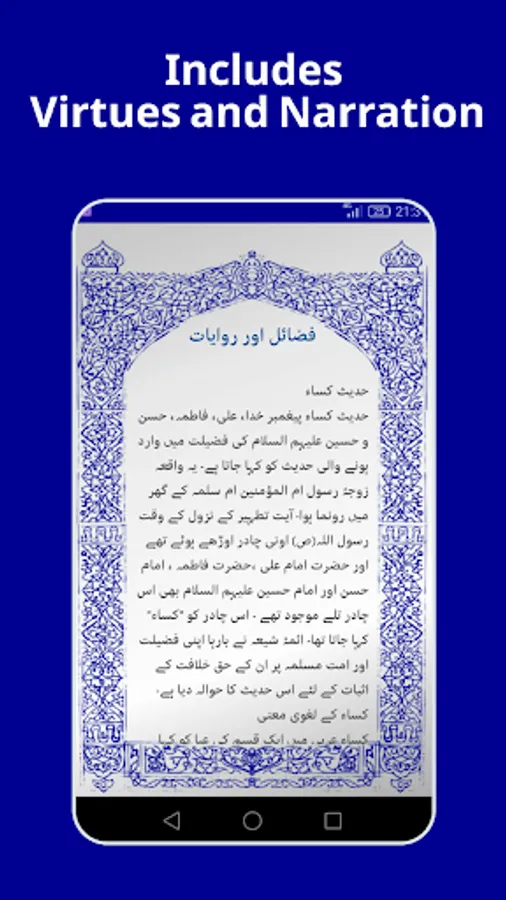 Includes
Virtues and Narration
21:3
فضائل اور روایات
حدیث کساء
حدیث کساء پیغمبر خدا، علی، فاطمہ، حسن
و حسین علیہم السلام کی فضیلت میں وارد
ہونے والی حدیث کو کہا جاتا ہے۔ یہ واقعہ
زوجۂ رسول ام المؤمنین ام سلمہ کے گھر
میں رونما ہوا۔ آیت تطہیر کے نزول کے وقت
رسول اللہ(ص) اونی چادر اوڑھے ہوئے تھے
اور حضرت امام علی ،حضرت فاطمہ ، امام
حسن اور امام حسین علیہم السلام بھی اس
چادر تلے موجود تھے ۔ اس چادر کو "کساء"
کہا جاتا تھا۔ ائمۂ شیعہ نے بارہا اپنی فضیلت
اور امت مسلمہ پر ان کے حق خلافت کے
اثبات کے لئے اس حدیث کا حوالہ دیا ہے۔
کساء کے لغوی معنی
کساء عربی میں ایک قسم کی عبا کو کہا